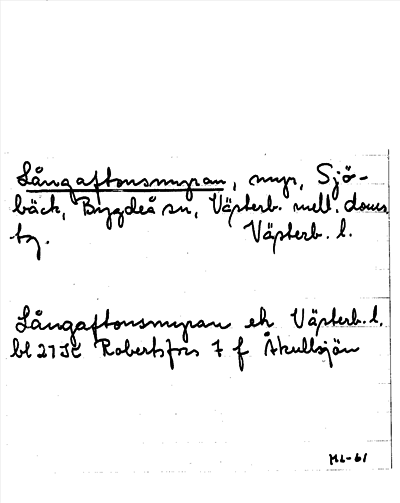 Långaftonsmyran, myr, Sjö-
bäck, Bygdeå sn, Västerb. mell. doms
tg. Västerb. l.
Långaftonsmyran ek Västerb. l.
bl 21J Robertsfors 7 f Åkullsjön
ML-61